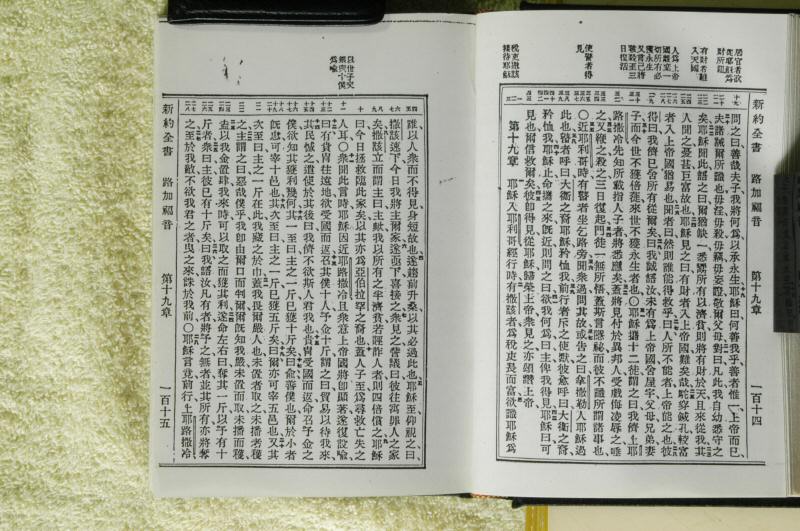 新約全書 路加福音 第十九章 一百十四
居官者欲從耶穌爲財所阻
有財者難入天國
人爲上帝國嚴棄一切所有必獲永生
又言己將被殺至三日復活
使瞽者得見
稅吏撒該接待耶穌
問之曰善哉夫子我將何爲以承永生耶穌曰何善我乎善者惟一上帝而已
夫諸誡爾所識也毋淫毋殺毋竊毋妄證敬爾父母對曰凡此我自幼悉守之
矣耶穌聞此語之曰爾猶缺一悉鬻所有以濟貧則將有財於天且來從我其
人聞之憂甚巨富故也耶穌見之曰有財者入上帝國難矣哉駝穿鍼孔較富
者入上帝國猶易也聞者曰然則誰能得救乎曰人所不能者上帝能之也彼
得曰我儕已舍所有從爾矣曰我誠語汝未有爲上帝國舍屋宇父母兄弟妻
子而今世不獲倍蓰來世不獲永生者也〇耶穌攜十二徒謂之曰我儕上耶
路撒冷先知所載指人子者將悉應矣蓋將見付於異邦人受戲侮凌辱之唾
之又鞭之殺之三日復起門徒一無所悟蓋斯言隱祕而彼不識所謂諸事也
〇近耶利哥時有瞽者坐乞路旁聞衆過問其故或告之曰拿撒勒人耶穌過
此也瞽者呼曰大衛之裔耶穌矜恤我前行者斥之使默彼愈呼曰大衛之裔
矜恤我耶穌止命攜之來既近則問之曰欲我何爲曰主俾我得見耶穌曰可
見也爾信救爾矣彼卽得見從耶穌歸榮上帝衆見之亦頌讚上帝
第十九章 耶穌入耶利哥經行時有撒該者爲稅吏長而富欲識耶穌爲
新約全書 路加福音 第十九章 一百十五
設世子交銀與十僕爲喩
誰以人衆而不得見身短故也遂趨前升桑以其必過此也耶穌至仰視之曰
撒該速下今日我將主爾家遂亟下喜接之衆見之訾議曰彼往寓罪人之家
矣撒該立而謂主曰主歟我以所有之半濟貧若誣詐人者則四倍償之耶穌
曰今日拯救臨此家矣以其亦爲亞伯拉罕之裔也蓋人子至爲尋救亡失之
人耳〇衆聞此言時耶穌因近耶路撒冷且衆意上帝國將卽顯著遂復設喩
曰有貴冑往遠地欲受國而返召其僕十人予金十斤謂之曰貿易以待我來
其民憾之遣使於其後曰我儕不欲斯人君我也貴冑受國而返命召予金之
僕欲知其獲利幾何其一至曰主之一斤已獲十斤矣曰俞善僕也爾於小者
既忠可宰十邑也其次至曰主之一斤已獲五斤矣曰爾亦可宰五邑也又其
次至曰主之一斤在此我藏之於巾蓋我畏爾嚴人也未置者取之未播者穫
之主謂之曰惡哉僕乎我卽由爾口而判爾爾既知我嚴未置而取未播而穫
盍以我金置肆我來時可以取之而獲其利遂命左右曰奪其一斤以予有十
斤者衆曰主彼已有十斤矣曰我語汝凡有者將予之無者並其所有亦將奪
之至於我敵不欲我君之者曳之來誅於我前〇耶穌言竟前行上耶路撒冷